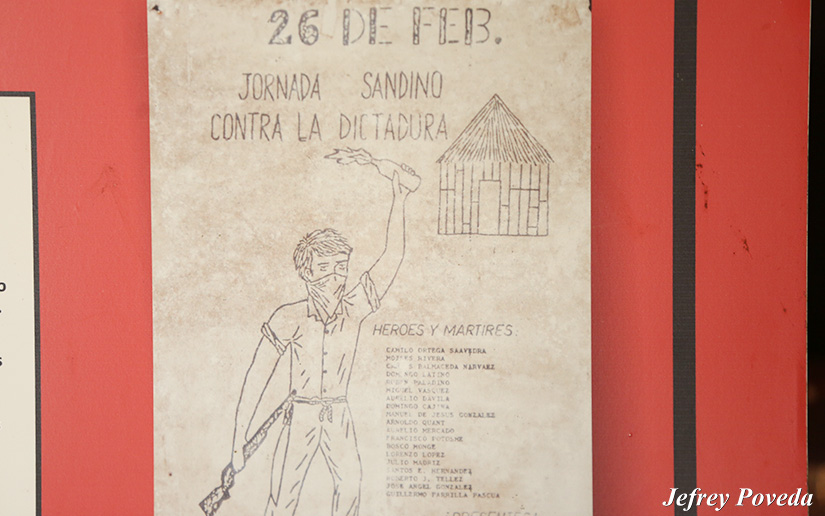 26 DE FEB.
JORNADA SANDINO
CONTRA LA DICTADURA
HEROES Y MARTIRES:
CAMILO ORTEGA SAAVEDRA
MOISES RIVERA
S BALMACEDA NARVAEZ
DOMINGO LATINO
RUBEN PALADINO
MIGUEL VASQUEZ
AURELIO DAVILA
DOMINGO CAJINA
MANUEL DE JESUS GONZALEZ
ARNOLDO QUANT
MERCADO
FRANCISCO POTOSME
BOSCO MONGE
LORENZO LOPEZ
JULIO MADRIZ
SANTOS E. HERNANDEZ
ROBERTO J. TELLEZ
JOSE ANGEL GONZALEZ
GUILLERMO PARRILLA PASCUA
Jefrey Poveda